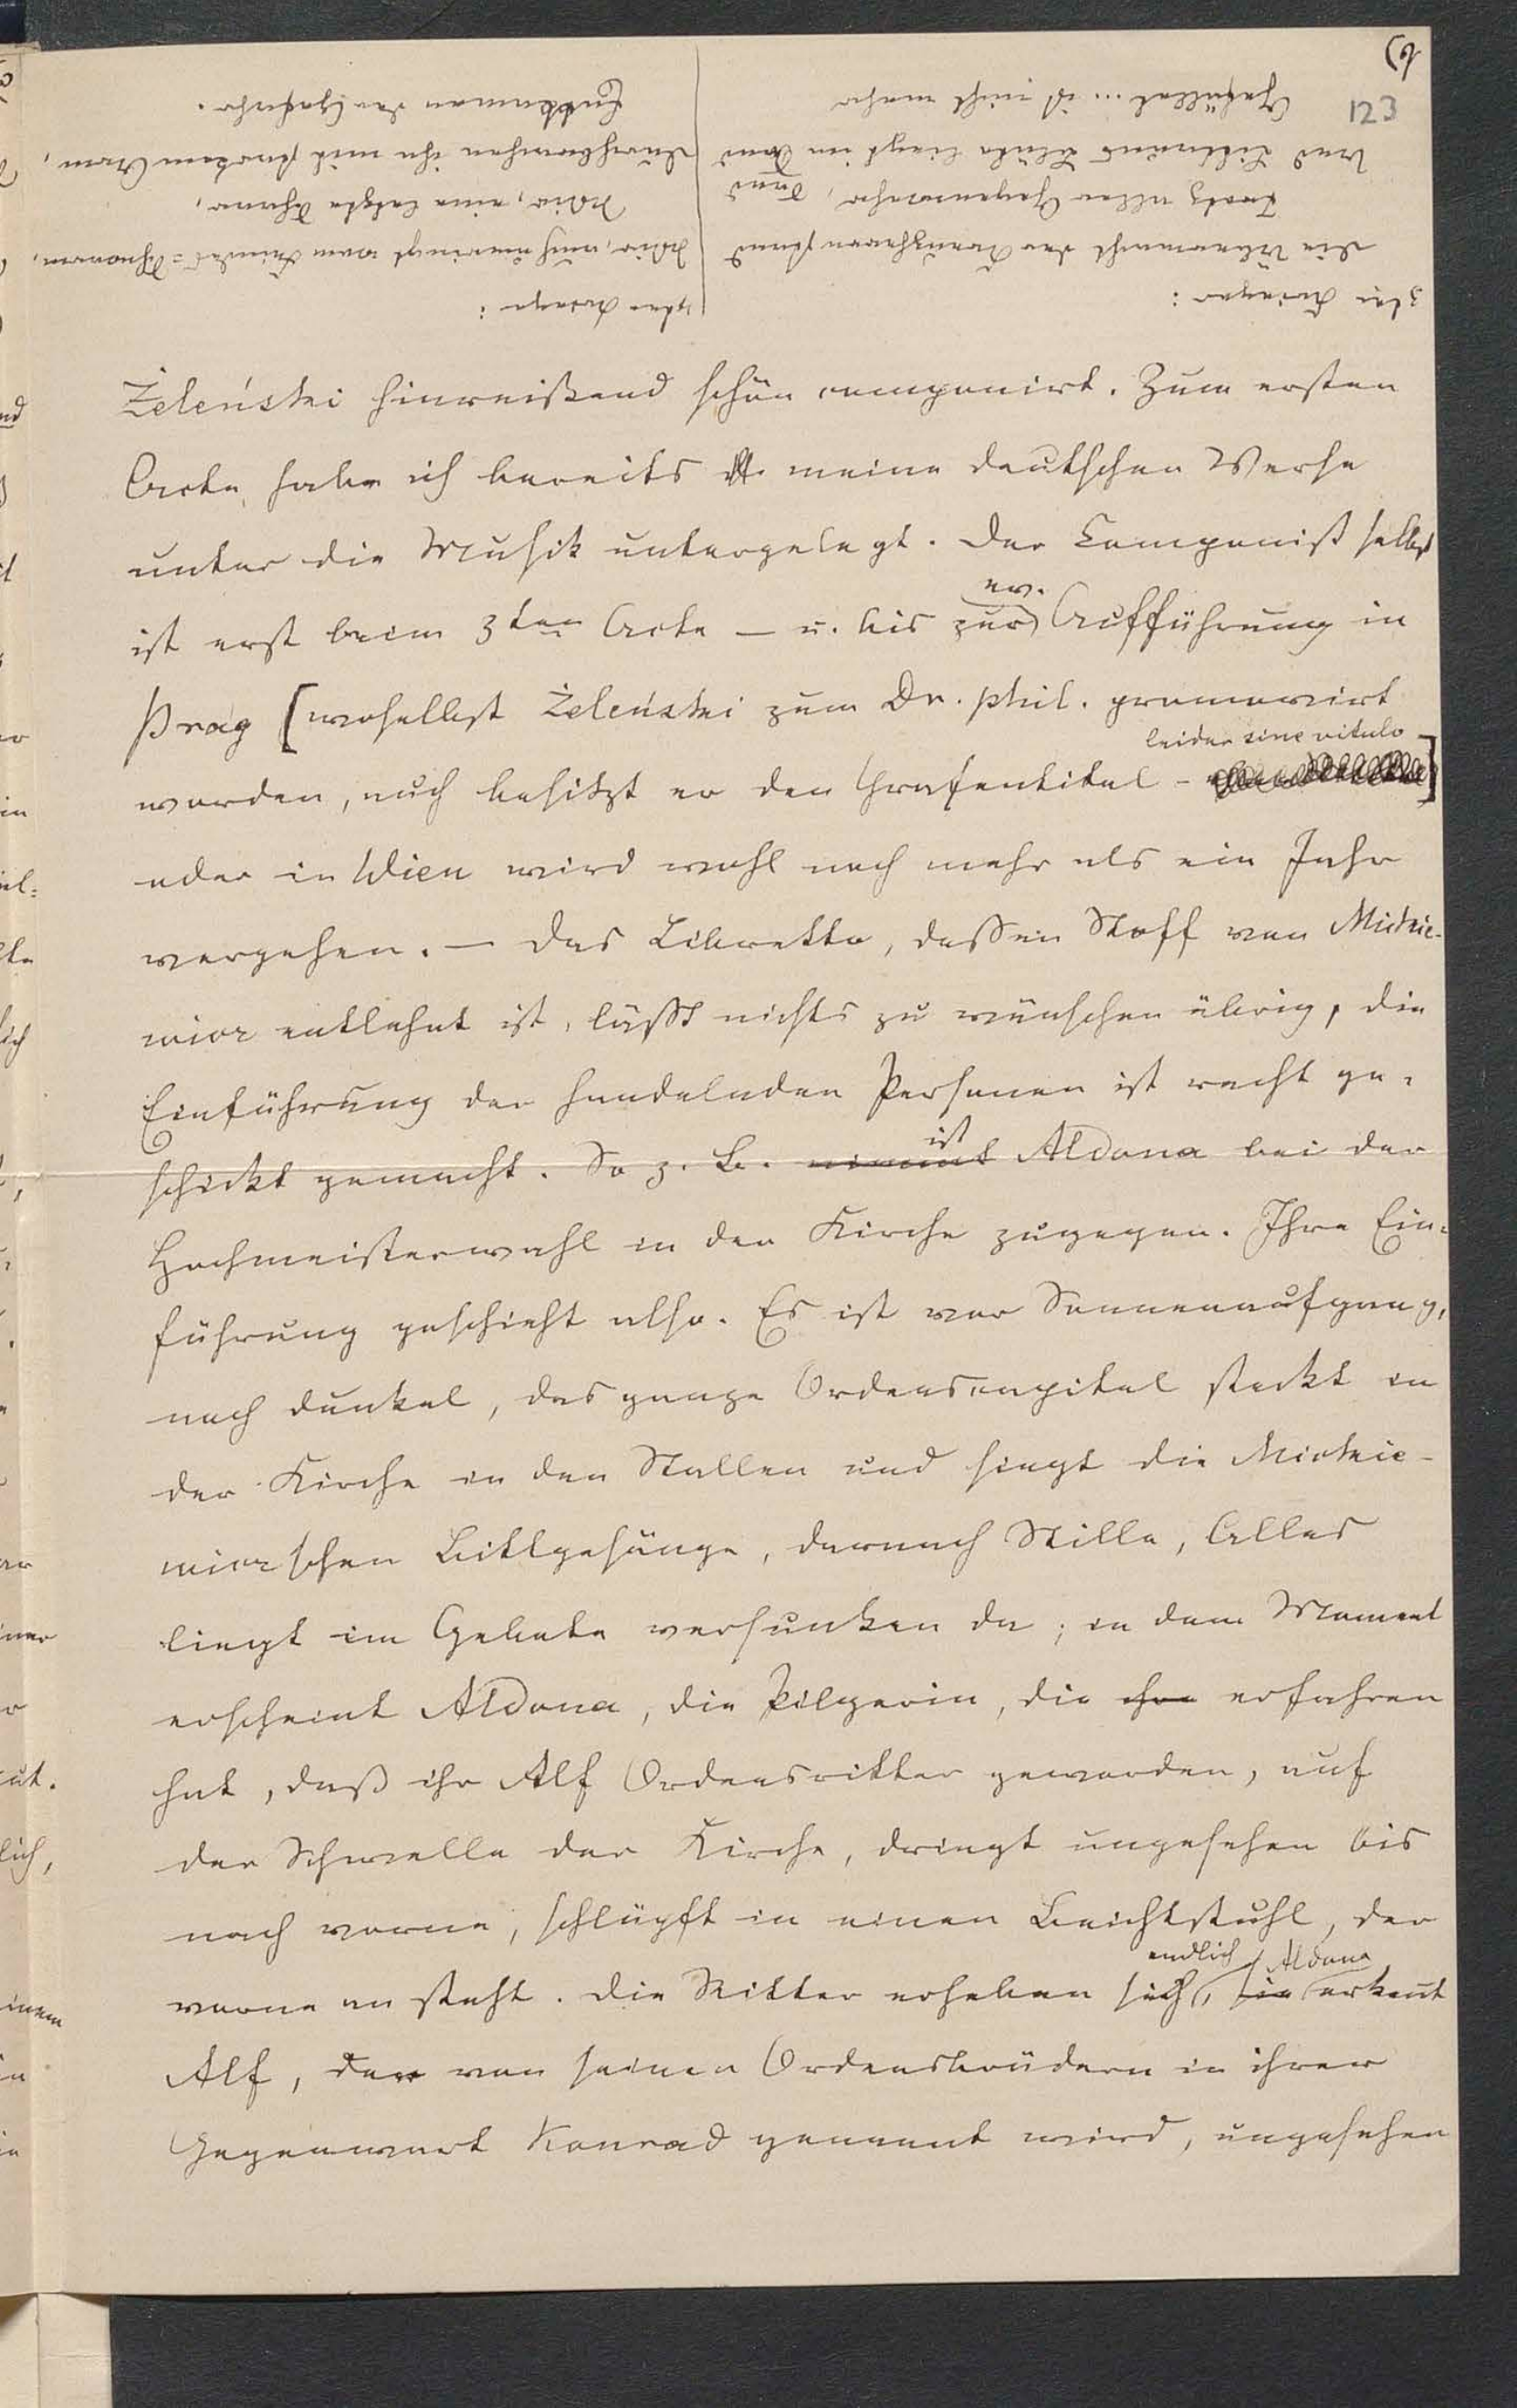 6)
123
3ter Krieger:
Die Übermacht der Kreuzherren stand
Trotz aller Gegenwehr,
Und Litauens Blüte liegt im Sand
Gefället ... ist nicht mehr
4ter Krieger:
Wir, noch umringt vom Feindes-Schwarm,
Wir, eine letzte Schaar,
Durchbrachen ihn mit starkem Arm,
Entkamen der Gefahr.
Żeleński hinreißend schön componirt. Zum ersten
Acte habe ich bereits meine deutschen Verse
unter die Musik untergelegt. Der Componist selbst
ist erst beim 3ten Acte – u. bis zur ev. Aufführung in
Prag [woselbst Żeleński zum Dr. phil. promovirt
worden, auch besitzt er den Grafentitel – leider sine vitulo –]
oder in Wien wird wohl noch mehr als ein Jahr
vergehen. – Das Libretto, dessen Stoff von Mickie-
wicz entlehnt ist, läßt nichts zu wünschen übrig, die
Einführung der handelnden Personen ist recht ge-
schickt gemacht. So z. B. ist Aldona bei der
Hochmeisterwahl in der Kirche zugegen. Ihre Ein-
führung geschieht also. Es ist vor Sonnenaufgang,
noch dunkel, das ganze Ordenscapitel steckt in
der Kirche in den Stallen und singt die Mickie-
wicz'schen Bittgesänge, darnach Stille, Alles
liegt im Gebete versunken da; in dem Moment
erscheint Aldona, die Pilgerin, die erfahren
hat, daß ihr Alf Ordensritter geworden, auf
der Schwelle der Kirche, dringt ungesehen bis
nach vorne, schlüpft in einen Beichtstuhl, der
vorne an steht. Die Ritter erheben sich endlich, Aldona erkennt
Alf, der von seinen Ordensbrüdern in ihrer
Gegenwart Konrad genannt wird, ungesehen